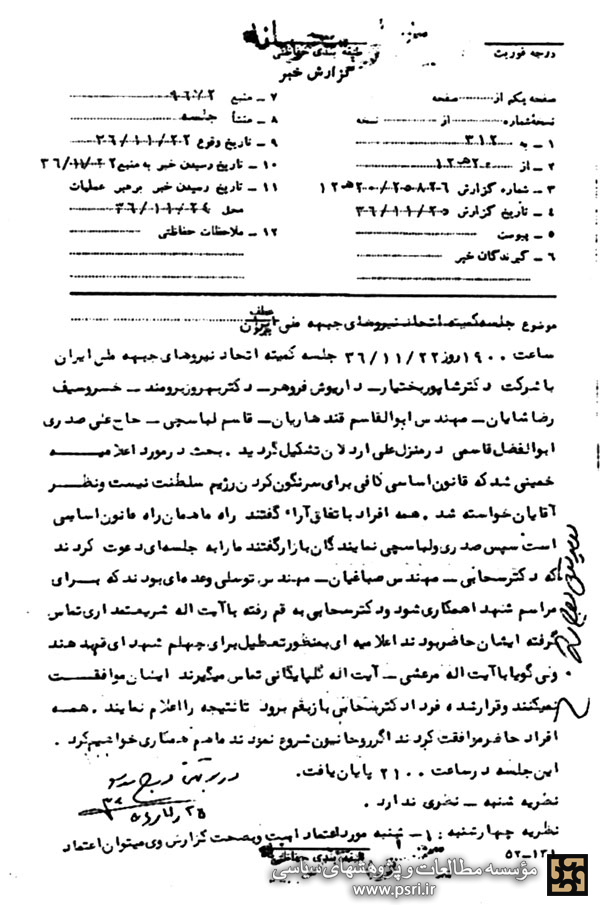 درجه فوریت
طبقه بندی حفاظتی
گزارش خبر
صفحه یکم از صفحه
نسخهٔ شماره از نسخه
۱ - به ۳۱۲
۲ - از ۲۰ هـ ۱۲
۳ - شماره گزارش ۲۵۸۲۶/۲۰ هـ ۱۲
۴ - تاریخ گزارش ۳۶/۱۱/۲۵
۵ - پیوست
۶ - گیرندگان خبر
۷ - منبع
۸ - منشأ جلسه
۹ - تاریخ وقوع ۳۶/۱۱/۲۲
۱۰ - تاریخ رسیدن خبر به منبع ۳۶/۱۱/۲۲
۱۱ - تاریخ رسیدن خبر برهبر عملیات
محل ۳۶/۱۱/۲۴
۱۲ - ملاحظات حفاظتی
موضوع جلسه کمیته اتحاد نیروهای جبهه ملی ایران
عطف
ساعت ۱۹۰۰ روز ۳۶/۱۱/۲۲ جلسه کمیته اتحاد نیروهای جبهه ملی ایران
با شرکت دکتر شاپور بختیار - داریوش فروهر - دکتر بهروز برومند - خسرو سیف
رضا شایان - مهندس ابوالقاسم قندهاریان - قاسم لباسچی - حاج علی صدری
ابوالفضل قاسمی در منزل علی اردلان تشکیل گردید . بحث در مورد اعلامیه
خمینی شد که قانون اساسی کافی برای سرنگون کردن رژیم سلطنت نیست و نظر
آقایان خواسته شد . همه افراد با تفاق آراء گفتند راه ما همان راه قانون اساسی
است سپس صدری و لباسچی نمایندگان بازار گفتند ما را به جلسه ای دعوت کردند
که دکتر سحابی - مهندس صباغیان - مهندس توسلی و عده ای بودند که برای
مراسم شهدا همکاری شود و دکتر سحابی به قم رفته با آیت اله شریعتمداری تماس
گرفته ایشان حاضر بودند اعلامیه ای بمنظور تعطیل برای چهلم شهدای قم بدهند
ولی گویا با آیت اله مرعشی - آیت اله گلپایگانی تماس میگیرند ایشان موافقت
نمیکنند و قرار شده فردا دکتر سحابی باز بقم برود تا نتیجه را اعلام نمایند . همه
افراد حاضر موافقت کردند اگر روحانیون شروع نمودند ما هم همکاری خواهیم کرد .
این جلسه در ساعت ۲۱۰۰ پایان یافت.
نظریه شنبه - نظری ندارد .
نظریه چهارشنبه : ۱ - شنبه مورد اعتماد است و بصحت گزارش وی میتوان اعتماد
طبقه بندی حفاظتی
۵۲-۱۳۱
مؤسسه مطالعات و پژوهشهای سیاسی
www.psri.ir